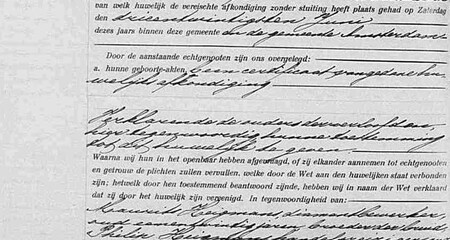 van welk huwelijk de vereischte afkondiging zonder stuiting heeft plaats gehad op Zaterdag
den drieentwintigsten Juni
dezes jaars binnen deze gemeente en de gemeente Amsterdam
Door de aanstaande echtgenooten zijn ons overgelegd:
a. hunne geboorte-akten, een certificaat aangaande hu-
welijksafkondiging
Verklarende de ouders der verloofden
hier tegenwoordig hunne toestemming
tot dit huwelijk te geven
Waarna wij hun in het openbaar hebben afgevraagd, of zij elkander aannemen tot echtgenooten
en getrouw de plichten zullen vervullen, welke door de Wet aan den huwelijken staat verbonden
zijn; hetwelk door hen toestemmend beantwoord zijnde, hebben wij in naam der Wet verklaard
dat zij door het huwelijk zijn vereenigd. In tegenwoordigheid van:
Maurits Heigmans, diamantbewerker,
oud eenentwintig jaren, broeder der bruid,
Philip